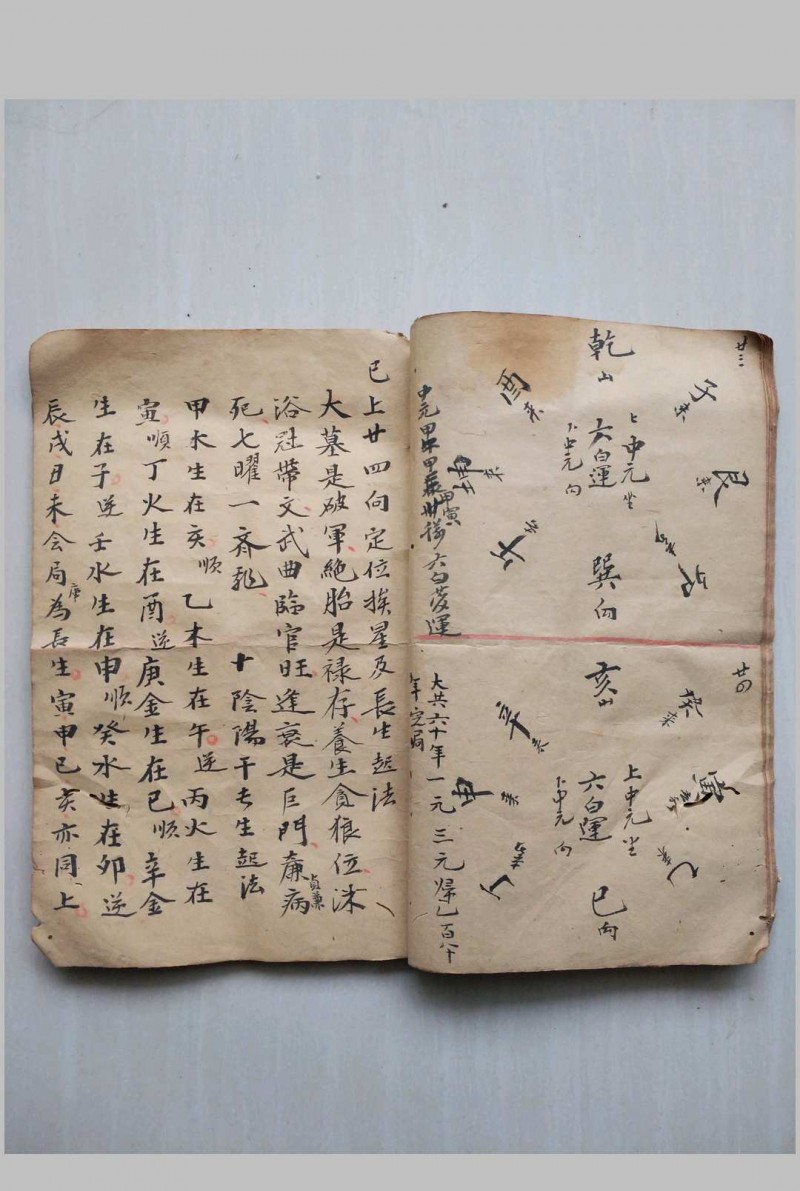 廿三
子 来
艮 来
乾 山
上中元 坐
六白運
下中元 向
巽 向
酉 来
坤 来
午 来
中元甲午甲辰
甲寅
六白葵運
廿四
癸 来
寅
乙
亥 山
上中元 坐
六白運
下中元 向
巳 向
辛 来
申 来
大共六十年一元三元歸乙百八十
年定局
已上廿四向定位挨星及長生起法
大墓是破軍絶胎是禄存養生貪狼位沐
浴冠帶文武曲臨官旺逢衰是巨門廉病
貞兼
死七曜一齊飛 十陰陽干長生起法
甲木生在亥順乙木生在午逆丙火生在
寅順丁火生在酉逆庚金生在巳順辛金
生在子逆壬水生在申順癸水生在卯逆
辰戌丑未会局為長生寅申巳亥亦同上
庫